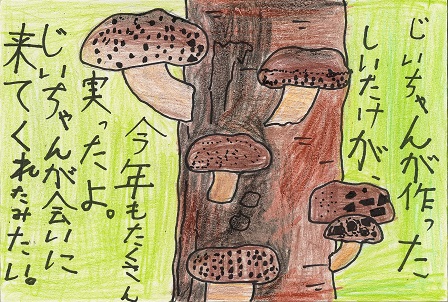 じいちゃんが作った
しいたけが、
今年もたくさん
実ったよ。
じいちゃんが会いに
来てくれたみたい。